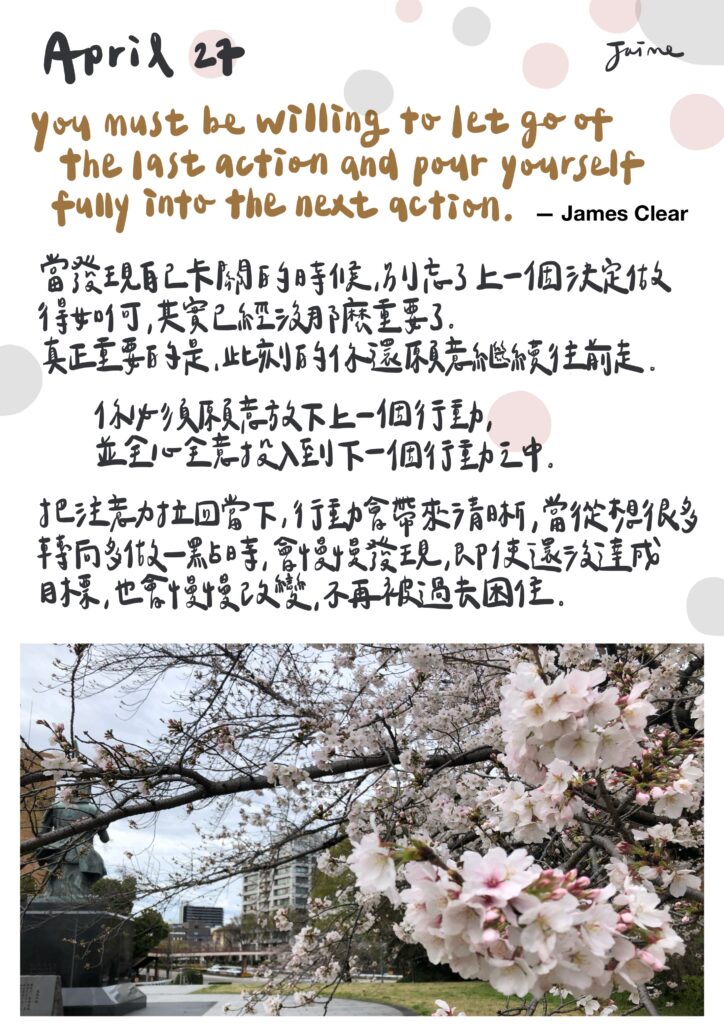 April 27
Jaime
you must be willing to let go of
the last action and pour yourself
fully into the next action. — James Clear
當發現自己卡關的時候,別忘了上一個決定做
得如何,其實已經沒那麼重要了.
真正重要的是,此刻的你還願意繼續往前走。
你必須願意放下上一個行動,
並全心全意投入到下一個行動之中。
把注意力拉回當下,行動會帶來清晰,當從想很多
轉向多做一點時,會慢慢發現,即使還沒達成
目標,也會慢慢改變,不再被過去困住。